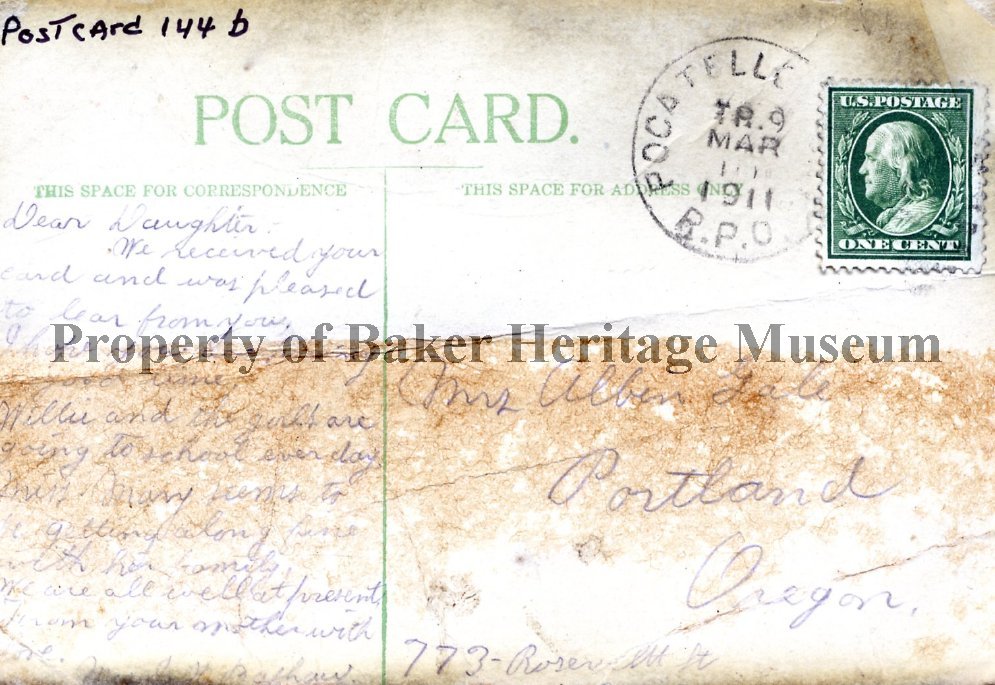 Postcard 144 b
POST CARD.
POCATELLO
TR. 9
MAR
1911
R.P.O.
U.S. POSTAGE
ONE CENT
THIS SPACE FOR CORRESPONDENCE
THIS SPACE FOR ADDRESS ONLY
Dear Daughter:-
We received your
card and was pleased
to hear from you,
good time
Willie and the girls are
going to school ever day
Mary seems to
be getting along fine
with her family,
We are all well at present,
From your mother with
love.
Property of Baker Heritage Museum
Mrs Alben Gale
Portland
Oregon,
773- St